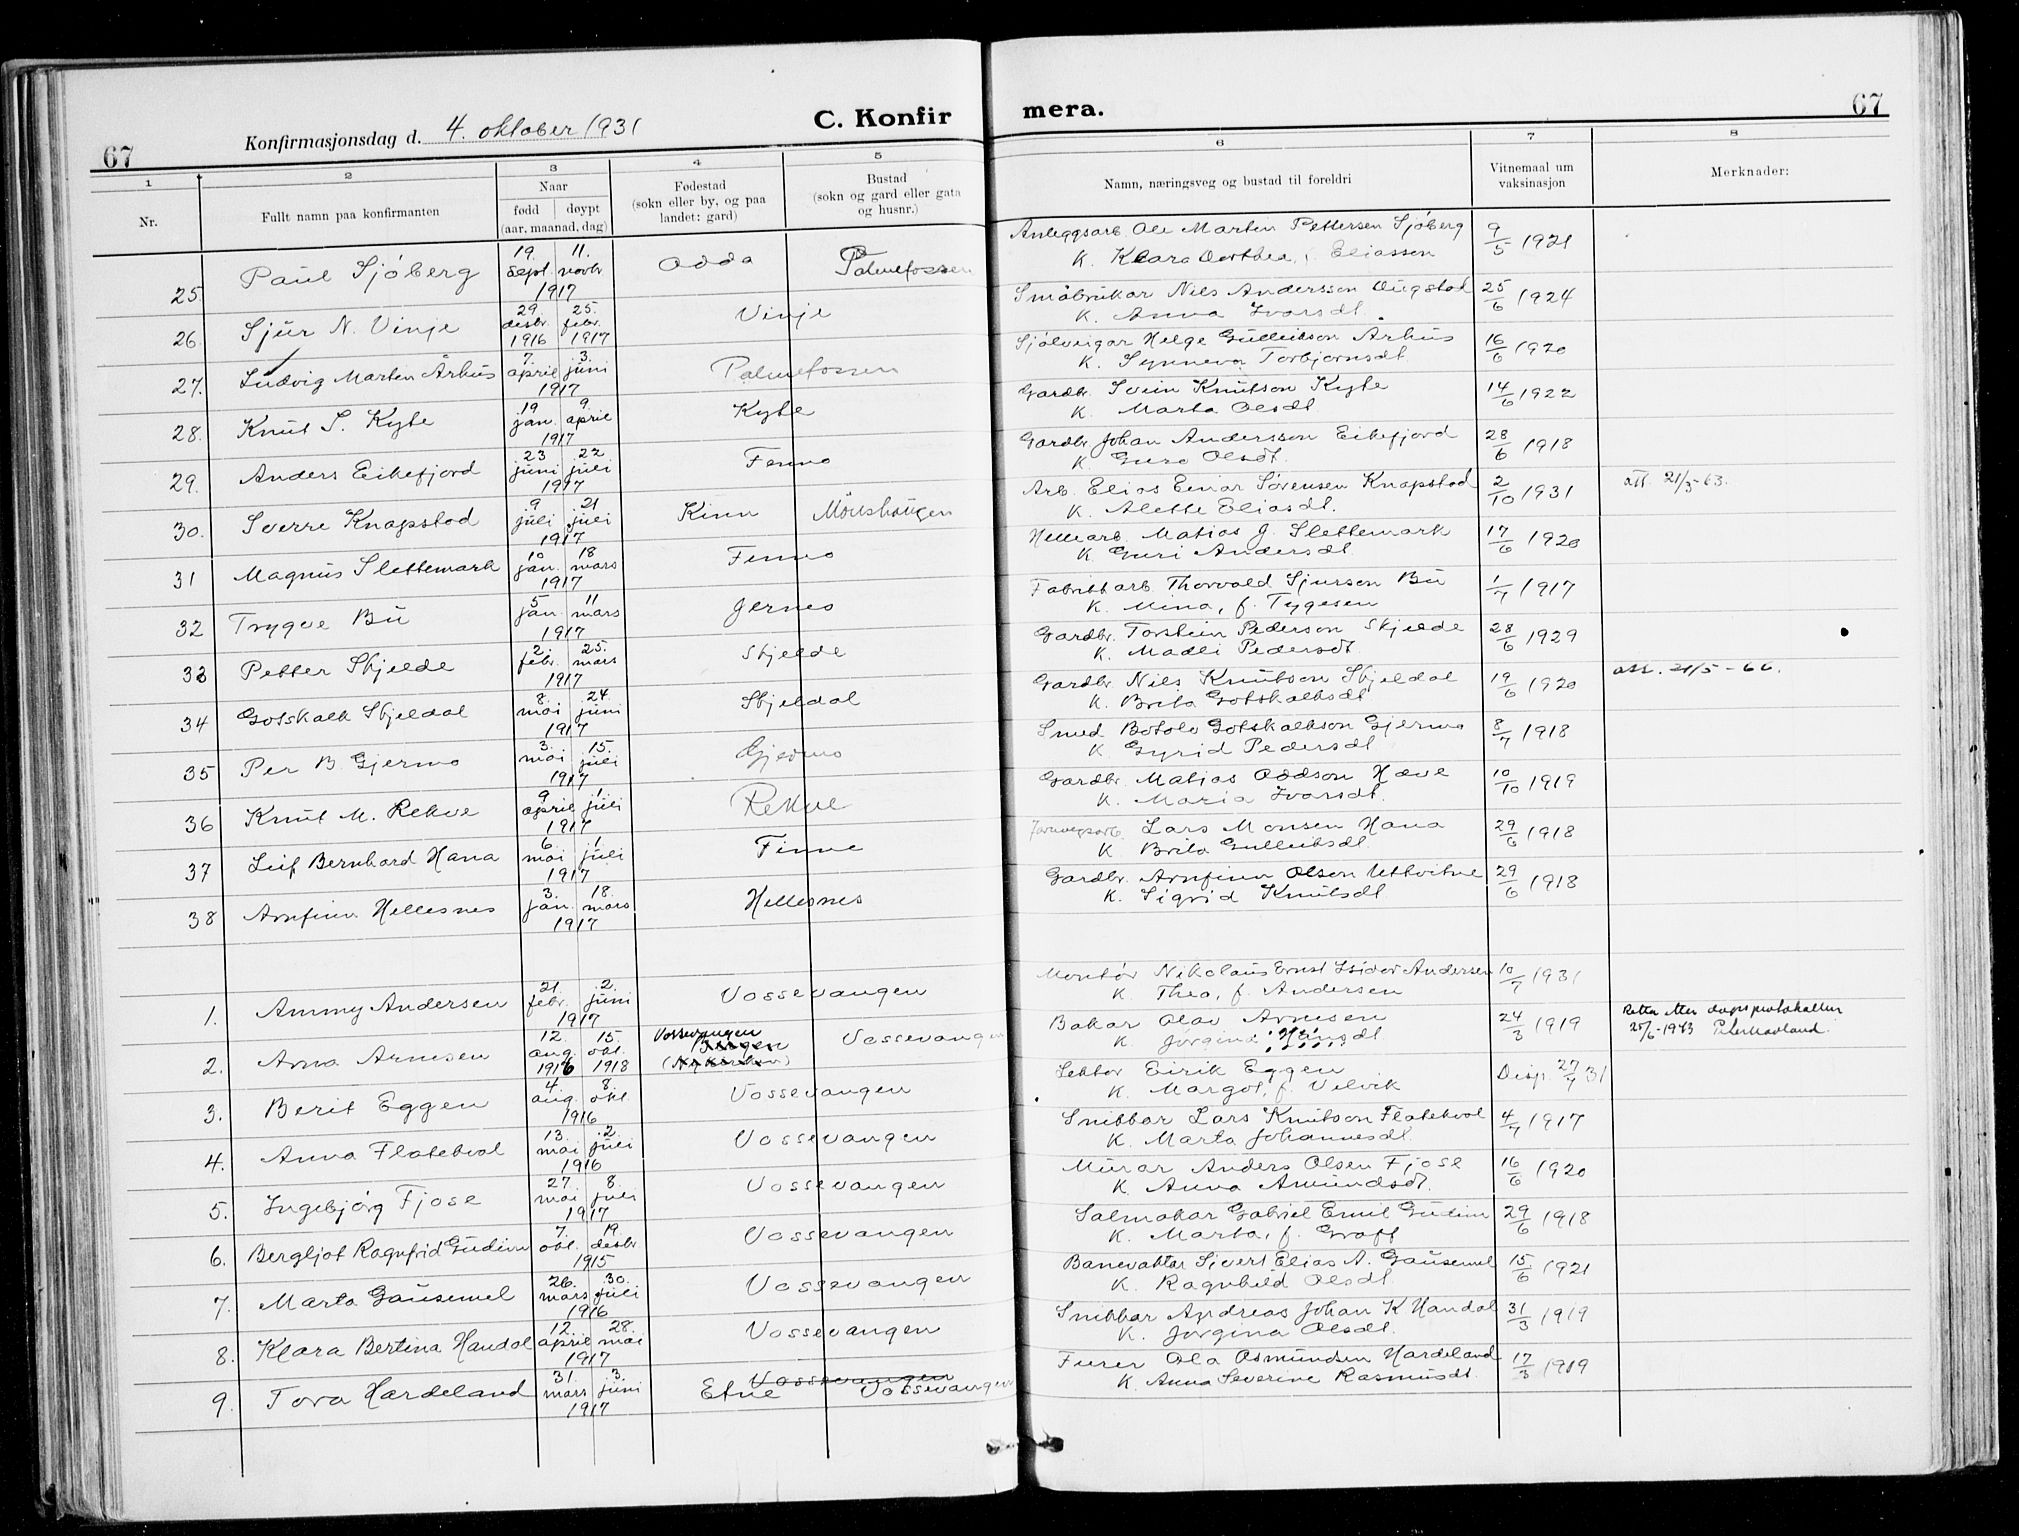 67
Konfirmasjonsdag d. 4. oktober 1931
C. Konfir
mera.
67
1
2
3
4
5
6
7
8
Nr.
Fullt namn paa konfirmanten
Naar
født
døypt
(aar, maanad, dag)
Fødestad
(sokn eller by, og paa
landet: gard)
Bustad
(sokn og gard eller gata
og husnr.)
Namn, næringsveg og bustad til foreldri
Vitnemaal um
vaksinasjon
Merknader:
25. Paul Sjöberg 19. sept. 11. novbr. 1917 Odda Palmefossen Anleggsarb. Ole Martin Pettersen Sjöberg K. Klara Dorthea, Eliassen 9/5 1921
26. Sjur N. Vinje 29 desbr. 1916 25. febr. 1917 Vinje Småbrukar Nils Andersson Dugstad K. Anna Ivarsdt. 25/6 1924
27. Ludvig Martin Århus 7. april 3. juni 1917 Palmefossen Sjølveigar Helge Gulleikson Århus K. Synneva Torbjørnsdt. 16/6 1920
28. Knut S. Kyte 19 jan. 9. april 1917 Kyte Gardbr. Svein Knutson Kyte K. Marta Olsdt. 14/6 1922
29. Anders Eikefjord 23 juni 22 juli 1917 Gardbr. Johan Andersson Eikefjord K. Guro Olsdt. 28/6 1918
30. Sverre Knapstad 9. juli 21 juli 1917 Kinn Mölshaugen Arb. Elias Einar Sørensen Knapstad K. Alette Eliasdt. 2/10 1931 att. 21/3-63.
31 Magnus Slettemark 10 jan. 18 mars 1917 Hellearb. Matias J. Slettemark K. Guri Andersdt. 17/6 1920
32 Trygve Bu 5 jan. 11 mars 1917 Jernes Fabrikkarb. Thorvald Sjurson Bu K. Mina, f. Tygesen 1/7 1917
33 Petter Skjelde 2. febr. 25. mars 1917 Skjelde Gardbr. Torstein Pederson Skjelde K. Madli Pedersdt. 28/6 1929
34 Gotskalk Skjeldal 8. mai 24. juni 1917 Skjeldal Gardbr. Nils Knutson Skjeldal K. Brita Gotskalksdt. 19/6 1920 att. 21/5-66.
35 Per B Gjerme 3. mai 15. juli 1917 Smed Botolv Gotskalkson Gjerme K. Gyrid Pedersdt. 8/7 1918
36 Knut M. Rekve 9 april 1 juli 1917 Rekve Gardbr. Matias Oddson Hæve K. Maria Ivarsdt. 10/10 1919
37 Leif Bernhard Hana 6. mai 1 juli 1917 Finne Jarnvegsarb. Lars Monsen Hana K. Brita Gulleiksdt. 29/6 1918
38 Arnfinn Hellesnes 3. jan. 18. mars 1917 Hellesnes Gardbr. Arnfinn Olson Uttveitne K. Sigrid Knutsdt. 29/6 1918
1. Ammy Andersen 21. febr. 2. juni 1917 Vossevangen Montör Nikolaus Ernst Isidor Andersen K. Thea, f. Andersen 10/7 1931
2. Arna Arnesen 12. aug. 1916 15. okt. 1918 Vossevangen Bergen (Nykirken) Vossevangen Bakar Olav Arnesen K Jorgine Hansdt 24/3 1919 Retta etter dåpsprotokollen 25/6-1943
3. Berit Eggen 4. aug. 8. okt. 1916 Vossevangen Lektor Eirik Eggen K. Margot, f. Velvik Disp. 27/7 31
4. Anna Flatekval 13. mai 2. juli 1916 Vossevangen Snikkar Lars Knutson Flatekval K. Marta Johannesdt. 4/7 1917
5. Ingebjörg Fjose 27. mai 8. juli 1917 Vossevangen Murar Anders Olsen Fjose K. Anna Amundsdt. 16/6 1920
6. Bergljot Ragnfrid Gudim 7. okt. 19. desbr. 1915 Vossevangen Salmakar Gabriel Emil Gudim K. Marta, f. Graff 29/6 1918
7. Marta Gausemel 26. mars 30. juli 1916 Vossevangen Banevaktar Sivert Elias A. Gausemel K. Ragnhild Olsdt. 15/6 1921
8. Klara Bertina Handal 12. april 28. mai 1917 Vossevangen Snikkar Andreas Johan K Handal K. Jorgina Olsdt. 31/3 1919
9. Tora Hardeland 31. mars 3. juni 1917 Vossevangen Etne Vossevangen Furer Ola Osmundsen Hardeland K. Anna Severine Rasmusdt. 17/3 1919